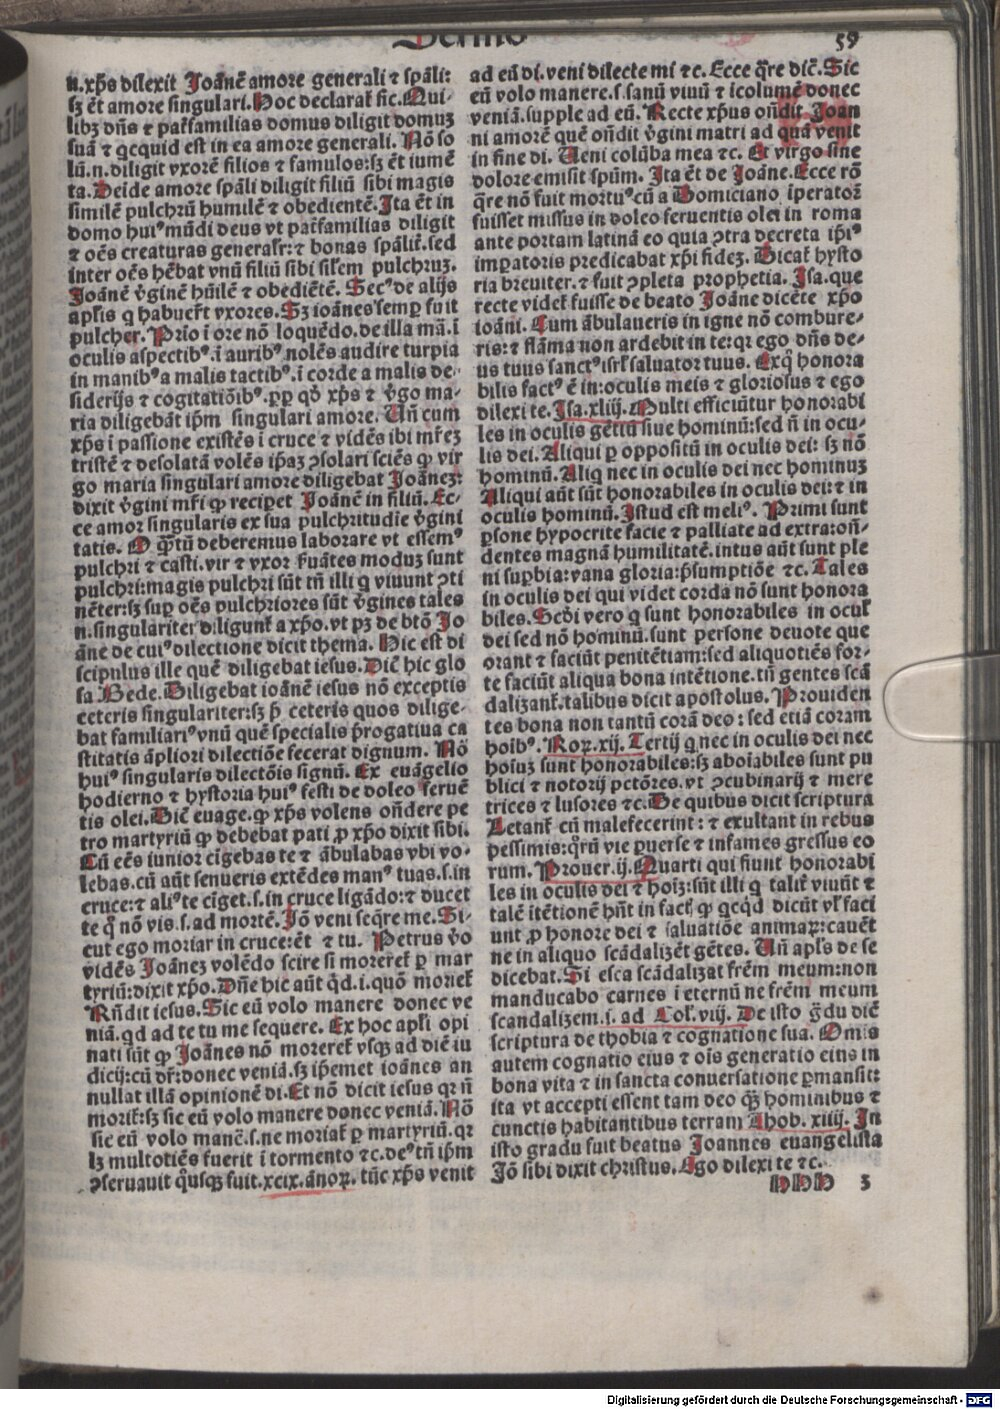 Sermo
59
n.xp̄s dilexit Joānē amore generali ⁊ sp̄ali:
sꝫ ēt amore singulari. Hoc declarat̄ sic. Qui-
libꝫ dn̄s ⁊ pat̄familias domus diligit domuꝫ
suā ⁊ qcquid est in ea amore generali. Nō so
lū.n.diligit vxorē filios ⁊ famulos:sꝫ ēt iumē
ta. Deide amore sp̄ali diligit filiū sibi magis
similē pulchrū humilē ⁊ obedientē. Ita ēt in
domo huiꝰ mūdi deus vt pat̄familias diligit
⁊ oēs creaturas general̄r:⁊ bonas sp̄alit̄.sed
inter oēs hēbat vnū filiū sibi sil̄em pulchruꝫ.
Joānē v̄ginē hūilē ⁊ obediētē. Secꝰ de alijs
apl̄is q habuer̄t vxores. Sꝫ ioānes semꝑ fuit
pulcher. Prio i ore nō loquēdo.de illa mā.i
oculis aspectibꝰ.i auribꝰ nolēs audire turpia
in manibꝰ a malis tactibꝰ.i corde a malis de-
siderijs ⁊ cogitatiōibꝰ.ꝓp qđ xp̄s ⁊ v̄go ma-
ria diligebāt ip̄m singulari amore. Un̄ cum
xp̄s i passione existēs i cruce ⁊ vidēs ibi mr̄eꝫ
tristē ⁊ desolatā volēs ip̄aꝫ ↄsolari sciēs ꝙ vir
go maria singulari amore diligebat Joāneꝫ:
dixit v̄gini mr̄i ꝙ reciꝑet Joānē in filiū. Ec-
ce amor singularis ex sua pulchritudie v̄gini
tatis. O q̄tū deberemus laborare vt essemꝰ
pulchri ⁊ casti. vir ⁊ vxor ẜuātes moduꝫ sunt
pulchri:magis pulchri sūt tn̄ illi q viuunt ↄti
nēter:sꝫ suꝑ oēs pulchriores sūt v̄gines tales
n.singulariter diligunt̄ a xp̄o. vt pꝫ de btō Jo
āne de cuiꝰ dilectione dicit thema. Hic est di
scipulus ille quē diligebat iesus. Dicē hic glo
sa Bede. Diligebat ioānē iesus nō exceptis
ceteris singulariter:sꝫ p̄ ceteris quos dilige-
bat familiariꝰ vnū quē specialis p̄rogatiua ca
stitatis āpliori dilectiōe fecerat dignum. Nō
huiꝰ singularis dilectōis signū. Ex euāgelio
hodierno ⁊ hystoria huiꝰ festi de doleo feruē
tis olei. Dicē euāge. ꝙ xp̄s volens on̄dere pe
tro martyriū ꝙ debebat pati ꝓ xp̄o dixit sibi.
Cū eēs iunior cīgebas te ⁊ ābulabas vbi vo-
lebas.cū aūt senueris extēdes manꝰ tuas.s.in
cruce:⁊ aliꝰ te cīget.s.in cruce ligādo:⁊ ducet
te q̄ nō vis.s.ad mortē. Jō veni seq̄re me. Si-
cut ego moriar in cruce:ēt ⁊ tu. Petrus v̄o
vidēs Joāneꝫ volēdo scire si moreret̄ ꝑ mar
tyriū:dixit xp̄o. Dn̄e hic aūt qd.i.quō moriet̄
Rn̄dit iesus. Sic eū volo manere donec ve
niā.qd ad te tu me sequere. Ex hoc apl̄i opi
nati sūt ꝙ Joānes nō moreret̄ vsqꝫ ad diē iu
dicij:cū dr̄:donec veniā.sꝫ ip̄emet ioānes an
nullat illā opinionē di. Et nō dicit iesus qꝛ n̄
morit̄:sꝫ sic eū volo manere donec veniā. Nō
sic eū volo manē.s.ne moriat̄ ꝑ martyriū.qꝛ
lꝫ multotiēs fuerit i tormento ⁊c.deꝰ tn̄ ip̄m
ↄseruauit qusqꝫ fuit.xcix.ānoꝝ. tūc xp̄s venit
ad eū di. veni dilecte mi ⁊c. Ecce q̄re dicē. Sic
eū volo manere.s.sanū viuū ⁊ icolumē donec
veniā.supple ad eū. Recte xp̄us on̄dit Joan
ni amorē quē on̄dit v̄gini matri ad quā venit
in fine di. Ueni colūba mea ⁊c. Et virgo sine
dolore emisit sp̄um. Ita ēt de Joāne. Ecce rō
q̄re nō fuit mortuꝰ cū a Domiciano iperatoꝛ
fuisset missus in doleo feruentis olei in roma
ante portam latinā eo quia ↄtra decreta ip̄iꝰ
imꝑatoris predicabat xp̄i fideꝫ. Dicat̄ hysto
ria breuiter.⁊ fuit ↄpleta prophetia. Isa.que
recte videt̄ fuisse de beato Joāne dicēte xp̄o
ioāni. Cum ābulaueris in igne nō combure-
ris:⁊ flāma non ardebit in te:qꝛ ego dn̄s de-
us tuus sanctꝰ isrl̄ saluator tuus. Exq̄ honora
bilis factꝰ ē in:oculis meis ⁊ gloriosus ⁊ ego
dilexi te. Isa.xliij. Multi efficiūtur honorabi
les in oculis gētiū siue hominū:sed n̄ in ocu-
lis dei. Aliqui ꝑ oppositū in oculis dei: sꝫ nō
hominū. Aliq nec in oculis dei nec hominuꝫ
Aliqui aūt sūt honorabiles in oculis dei:⁊ in
oculis hominū. Istud est meliꝰ. Primi sunt
ꝑsone hypocrite facie ⁊ palliate ad extra:on̄-
dentes magnā humilitatē.intus aūt sunt ple
ni suꝑbia:vana gloria:p̄sumptiōe ⁊c. Tales
in oculis dei qui videt corda nō sunt honora
biles. Scđi vero q sunt honorabiles in ocul̄
dei sed nō hominū.sunt persone deuote que
orant ⁊ faciūt penitētiam:sed aliquotiēs for-
te faciūt aliqua bona intētione.tn̄ gentes scā
dalizant̄.talibus dicit apostolus. Prouiden
tes bona non tantū corā deo: sed etiā coram
hoibꝰ. Roꝝ.xij. Tertij q nec in oculis dei nec
hoiuꝫ sunt honorabiles:sꝫ aboiabiles sunt pu
blici ⁊ notorij pctōres.vt ↄcubinarij ⁊ mere
trices ⁊ lusores ⁊c. De quibus dicit scriptura
Letant̄ cū malefecerint: ⁊ exultant in rebus
pessimis:q̄rū vie ꝑuerse ⁊ infames gressus eo
rum. Prouer.ij. Quarti qui fiunt honorabi
les in oculis dei ⁊ hoiꝫ:sūt illi q talit̄ viuūt ⁊
talē itētionē hn̄t in factꝭ ꝙ qcqd dicūt vl̄ faci
unt ꝓ honore dei ⁊ saluatiōe animaꝝ:cauēt
ne in aliquo scādalizēt gētes. Un̄ apl̄s de se
dicebat. Si esca scādalizat fr̄em meum:non
manducabo carnes i eternū ne fr̄em meum
scandalizem.s. ad Col̄.viij. De isto g̈du dicē
scriptura de thobia ⁊ cognatione sua. Omis
autem cognatio eius ⁊ ois generatio eius in
bona vita ⁊ in sancta conuersatione ꝑmansit:
ita vt accepti essent tam deo qꝫ hominibus ⁊
cunctis habitantibus terram Thob. xiiij. In
isto gradu fuit beatus Joannes euangelista
Jō sibi dixit christus. Ego dilexi te ⁊c.
HHH 3
Digitalisierung gefördert durch die Deutsche Forschungsgemeinschaft - DFG